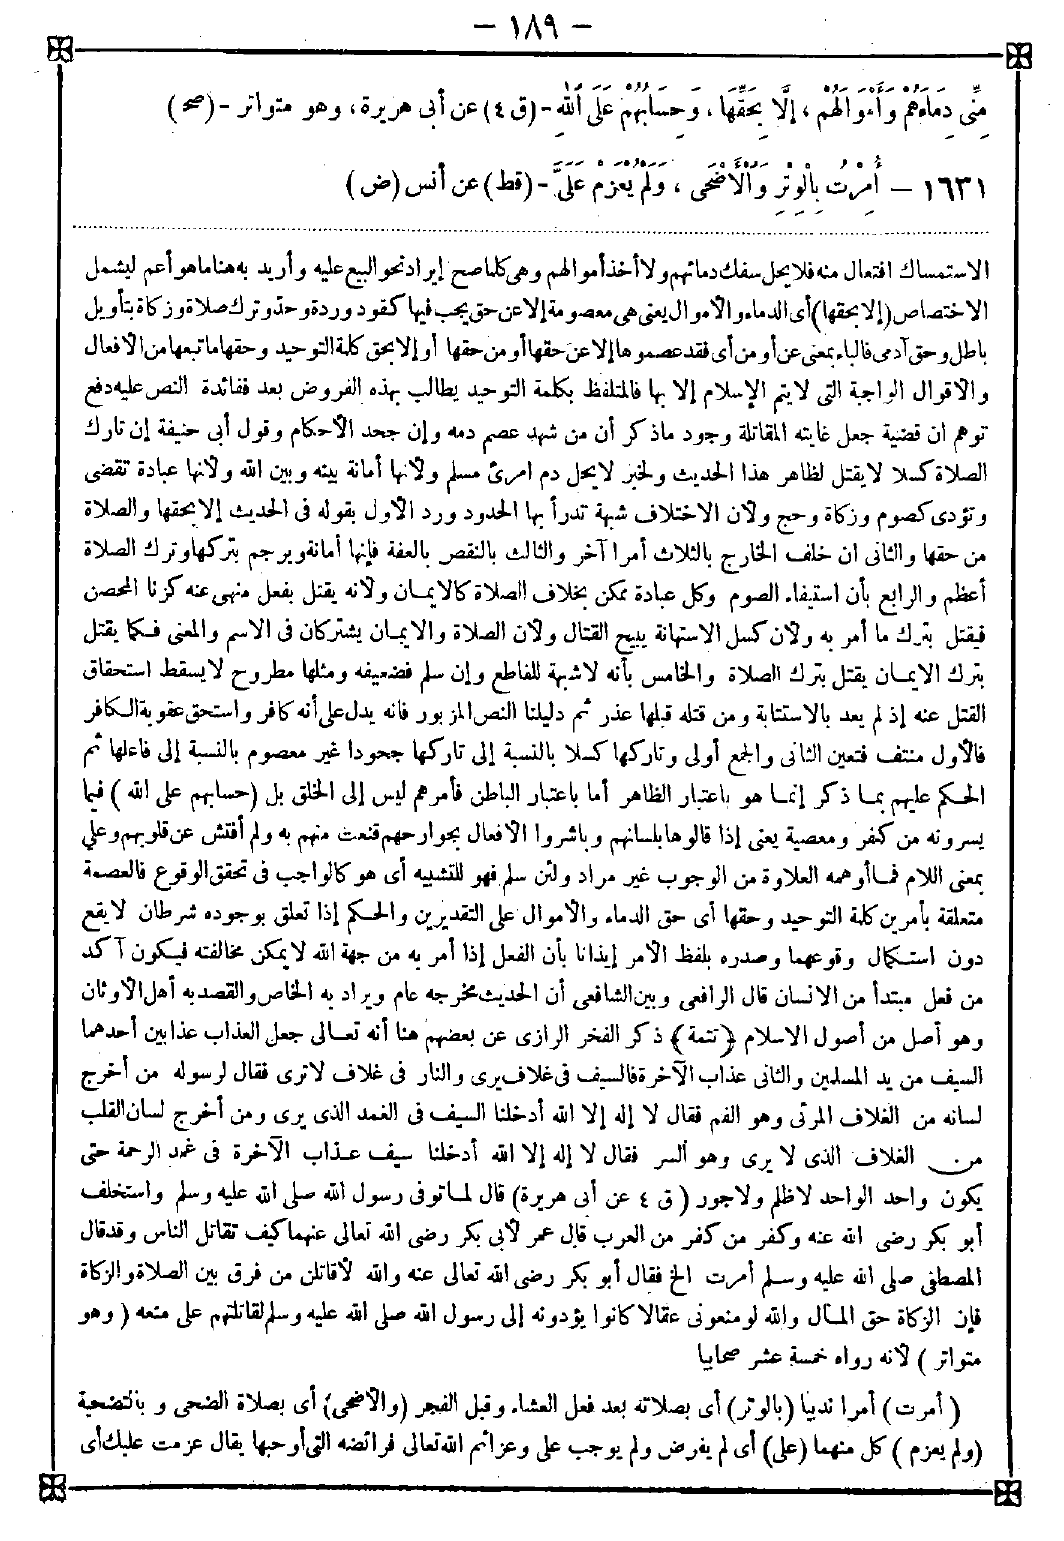 – ١٨٩ –
مِنِّي دِمَاءَهُمْ وَأَمْوَالَهُمْ ، إِلَّا بِحَقِّهَا ، وَحِسَابُهُمْ عَلَى اللهِ - (ق ٤) عن أبى هريرة ، وهو متواتر - (صح)
١٦٣١ – أُمِرْتُ بِالْوِتْرِ وَالْأَضْحَى ، وَلَمْ يُعْزَمْ عَلَىَّ - (قط) عن أنس (ض)
الاستمساك افتعال منه فلا يحل سفك دمائهم ولا أخذ أموالهم وهى كلما صح إيراد نحو البيع عليه وأريد به هنا ما هو أعم ليشمل
الاختصاص (إلا بحقها) أى الدماء والأموال يعنى هى معصومة إلا عن حق يجب فيها كقود وردة وحد وترك صلاة وزكاة بتأويل
باطل وحق آدمى فالباء بمعنى عن أو من أى فقد عصموها إلا عن حقها أو من حقها أو إلا بحق كلمة التوحيد وحقها ما تبعها من الأفعال
والأقوال الواجبة التى لا يتم الإسلام إلا بها فالمتلفظ بكلمة التوحيد يطالب بهذه الفروض بعد ففائدة النص عليه دفع
توهم ان قضية جعل غايته المقاتلة وجود ماذكر أن من شهد عصم دمه وإن جحد الأحكام وقول أبى حنيفة إن تارك
الصلاة كسلا لا يقتل لظاهر هذا الحديث ولخبر لا يحل دم امرئ مسلم ولأنها أمانة بينه وبين الله ولأنها عبادة تقضى
وتؤدى كصوم وزكاة وحج ولان الاختلاف شبهة تدرأ بها الحدود ورد الأول بقوله فى الحديث إلا بحقها والصلاة
من حقها والثانى ان خلف الخارج بالثلاث أمرا آخر والثالث بالنقص بالعفة فإنها أمانة ويرجم بتركها وترك الصلاة
أعظم والرابع بأن استيفاء الصوم وكل عبادة ممكن بخلاف الصلاة كالايمان ولأنه يقتل بفعل منهى عنه كزنا المحصن
فيقتل بترك ما أمر به ولان كسل الاستهانة يبيح القتال ولأن الصلاة والايمان يشتركان فى الاسم والمعنى فكما يقتل
بترك الايمان يقتل بترك الصلاة والخامس بأنه لا شبهة للقاطع وإن سلم فضعيفه ومثلها مطروح لا يسقط استحقاق
القتل عنه إذ لم يعد بالاستتابة ومن قتله قبلها عذر ثم دليلنا النص المزبور فانه يدل على أنه كافر واستحق عقوبة الكافر
فالأول منتف فتعين الثانى والجمع أولى وتاركها كسلا بالنسبة إلى تاركها جحودا غير معصوم بالنسبة إلى فاعلها ثم
الحكم عليهم بما ذكر إنما هو باعتبار الظاهر أما باعتبار الباطن فأمرهم ليس إلى الخلق بل (حسابهم على الله) فيما
يسرونه من كفر ومعصية يعنى إذا قالوها بلسانهم وباشروا الأفعال بجوارحهم قنعت منهم به ولم أفتش عن قلوبهم وعلى
بمعنى اللام فما أوهمه العلاوة من الوجوب غير مراد ولئن سلم فهو للتشبيه أى هو كالواجب فى تحقق الوقوع فالعصمة
متعلقة بأمرين كلمة التوحيد وحقها أى حق الدماء والأموال على التقديرين والحكم إذا تعلق بوجوده شرطان لا يقع
دون استكمال وقوعهما وصدره بلفظ الأمر إيذانا بأن الفعل إذا أمر به من جهة الله لا يمكن مخالفته فيكون آكد
من فعل مبتدأ من الانسان قال الرافعى وبين الشافعى أن الحديث مخرجه عام ويراد به الخاص والقصد به أهل الأوثان
وهو أصل من أصول الاسلام (تتمة) ذكر الفخر الرازى عن بعضهم هنا أنه تعالى جعل العذاب عذابين أحدهما
السيف من يد المسلمين والثانى عذاب الآخرة فالسيف فى غلاف يرى والنار فى غلاف لا ترى فقال لرسوله من أخرج
لسانه من الغلاف المرئى وهو الفم فقال لا إله إلا الله أدخلنا السيف فى الغمد الذى يرى ومن أخرج لسان القلب
من الغلاف الذى لا يرى وهو السر فقال لا إله إلا الله أدخلنا سيف عذاب الآخرة فى غمد الرحمة حتى
يكون واحد الواحد لا ظلم ولا جور (ق ٤ عن أبى هريرة) قال لما توفى رسول الله صلى الله عليه وسلم واستخلف
أبو بكر رضى الله عنه وكفر من كفر من العرب قال عمر لأبى بكر رضى الله تعالى عنهما كيف تقاتل الناس وقد قال
المصطفى صلى الله عليه وسلم أمرت الخ فقال أبو بكر رضى الله تعالى عنه والله لأقاتلن من فرق بين الصلاة والزكاة
فإن الزكاة حق المال والله لو منعونى عقالا كانوا يؤدونه إلى رسول الله صلى الله عليه وسلم لقاتلتهم على منعه (وهو
متواتر) لأنه رواه خمسة عشر صحابيا
(أمرت) أمرا ندبيا (بالوتر) أى بصلاته بعد فعل العشاء وقبل الفجر (والأضحى) أى بصلاة الضحى و بالتضحية
(ولم يعزم) كل منهما (على) أى لم يفرض ولم يوجب على وعزائم الله تعالى فرائضه التى أوجبها يقال عزمت عليك أى